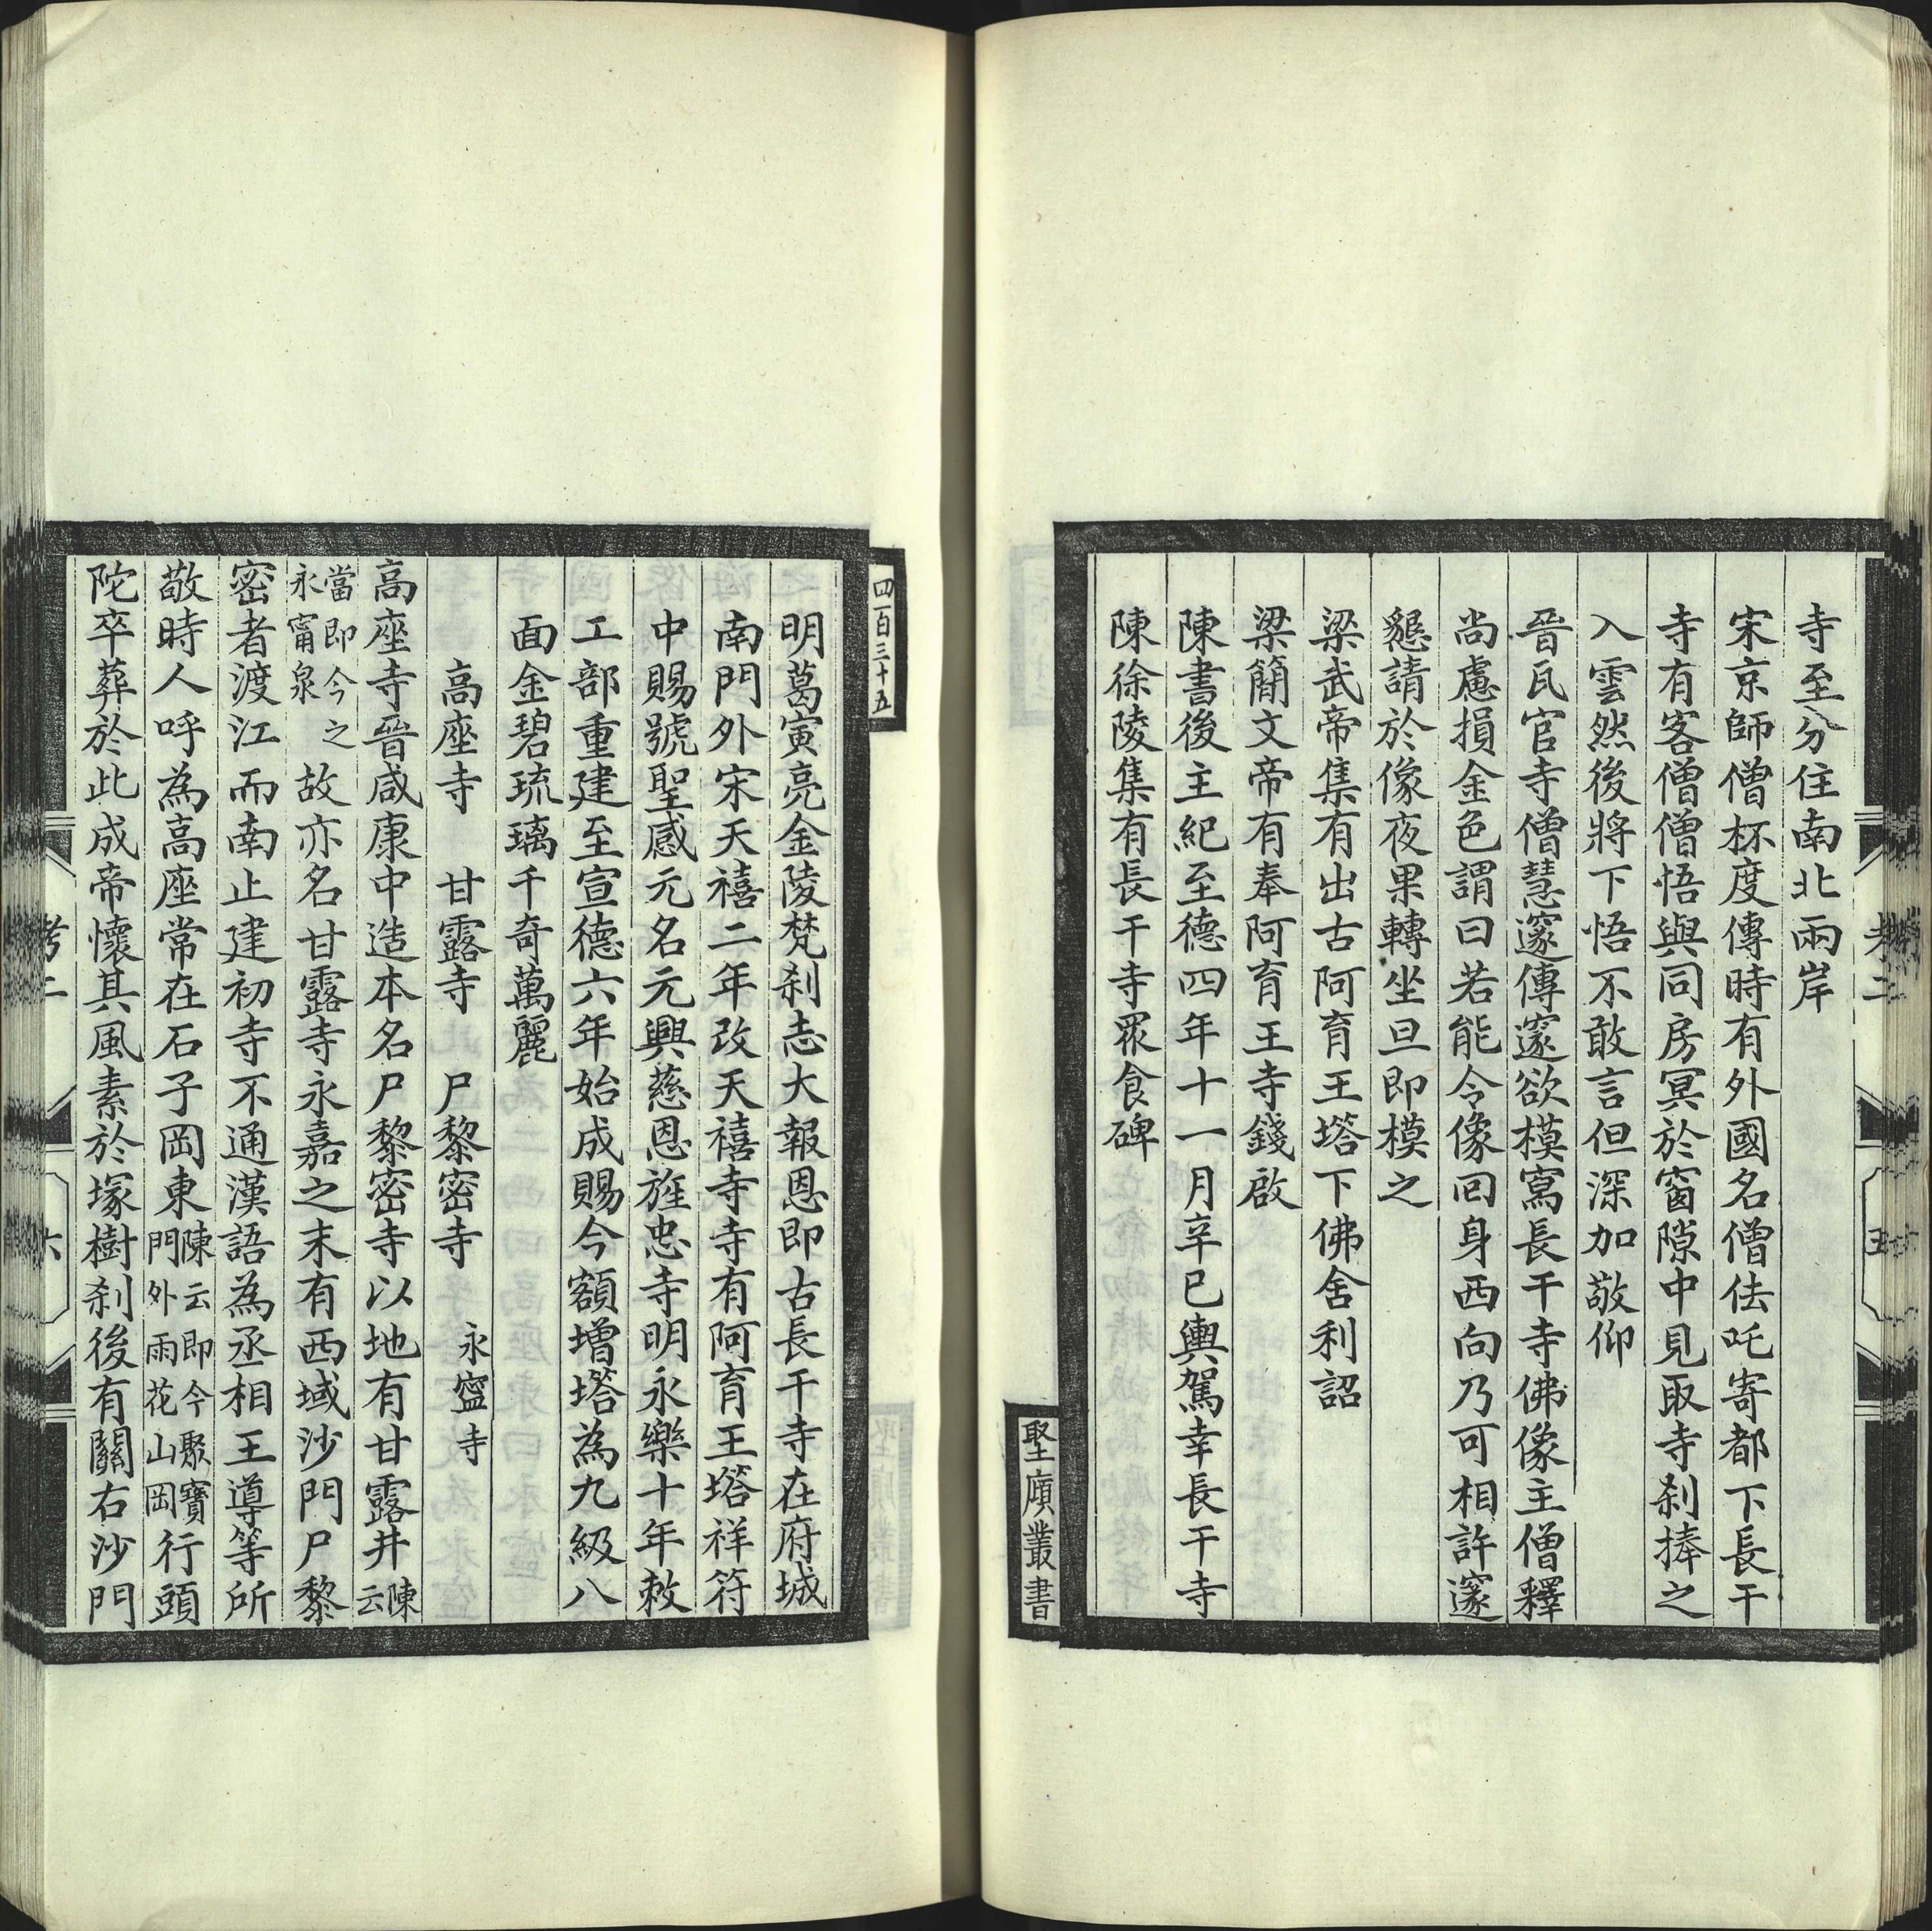 寺至分住南北兩岸
宋京師僧杯度傳時有外國名僧佉吒寄都下長干
寺有客僧僧悟與同房冥於窗隙中見取寺刹捧之
入雲然後將下悟不敢言但深加敬仰
晉瓦官寺僧慧邃傳邃欲模寫長干寺佛像主僧釋
尚慮損金色謂曰若能令像回身西向乃可相許邃
懇請於像夜果轉坐旦即模之
梁武帝集有出古阿育王塔下佛舍利詔
梁簡文帝有奉阿育王寺錢啟
陳書後主紀至德四年十一月辛巳輿駕幸長干寺
陳徐陵集有長干寺眾食碑
堅廎叢書
四百三十五
明葛寅亮金陵梵刹志大報恩即古長干寺在府城
南門外宋天禧二年改天禧寺寺有阿育王塔祥符
中賜號聖感元名元興慈恩旌忠寺明永樂十年敕
工部重建至宣德六年始成賜今額增塔為九級八
面金碧琉璃千奇萬麗
高座寺 甘露寺 尸黎密寺 永寍寺
高座寺晉咸康中造本名尸黎密寺以地有甘露井陳云
當即今之永甯泉故亦名甘露寺永嘉之末有西域沙門尸黎
密者渡江而南止建初寺不通漢語為丞相王導等所
敬時人呼為高座常在石子岡東陳云即今聚寶門外雨花山岡行頭
陀卒葬於此成帝懷其風素於塚樹刹後有關右沙門
考二